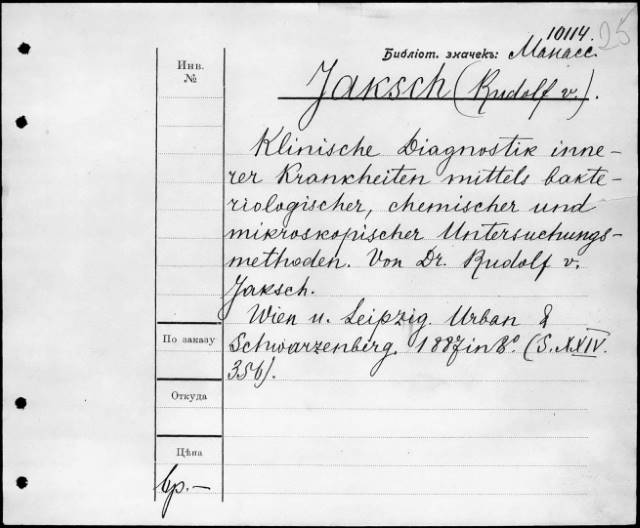 10114.
25
Библіот. значекъ: Манасс.
Инв.
№
Jaksch (Rudolf v.).
Klinische Diagnostik inne-
rer Krankheiten mittels bakte-
riologischer, chemischer und
mikroskopischer Untersuchungs-
methoden. Von Dr. Rudolf v.
Jaksch.
Wien u. Leipzig. Urban &
Schwarzenberg. 1887 in 8°. (S. XXIV.
356).
По заказу
Откуда
Цѣна
6р.—